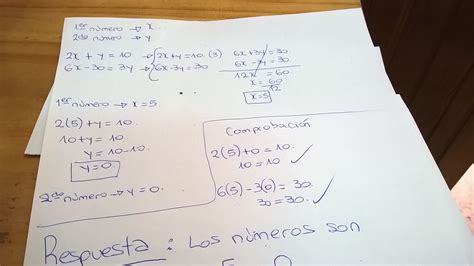 1er número → x.
2do número → y
2x + y = 10 → { 2x+y = 10. (3)
6x - 30 = 3y → { 6x - 3y = 30
6x + 3y = 30
6x - 3y = 30.
12x = 60.
x = 60/12
x = 5
1er número → x = 5.
2(5) + y = 10.
10 + y = 10.
y = 10 - 10.
y = 0.
2do número → y = 0.
Comprobación
2(5) + 0 = 10.
10 = 10 ✓
6(5) - 3(0) = 30.
30 = 30. ✓
Respuesta : Los números son